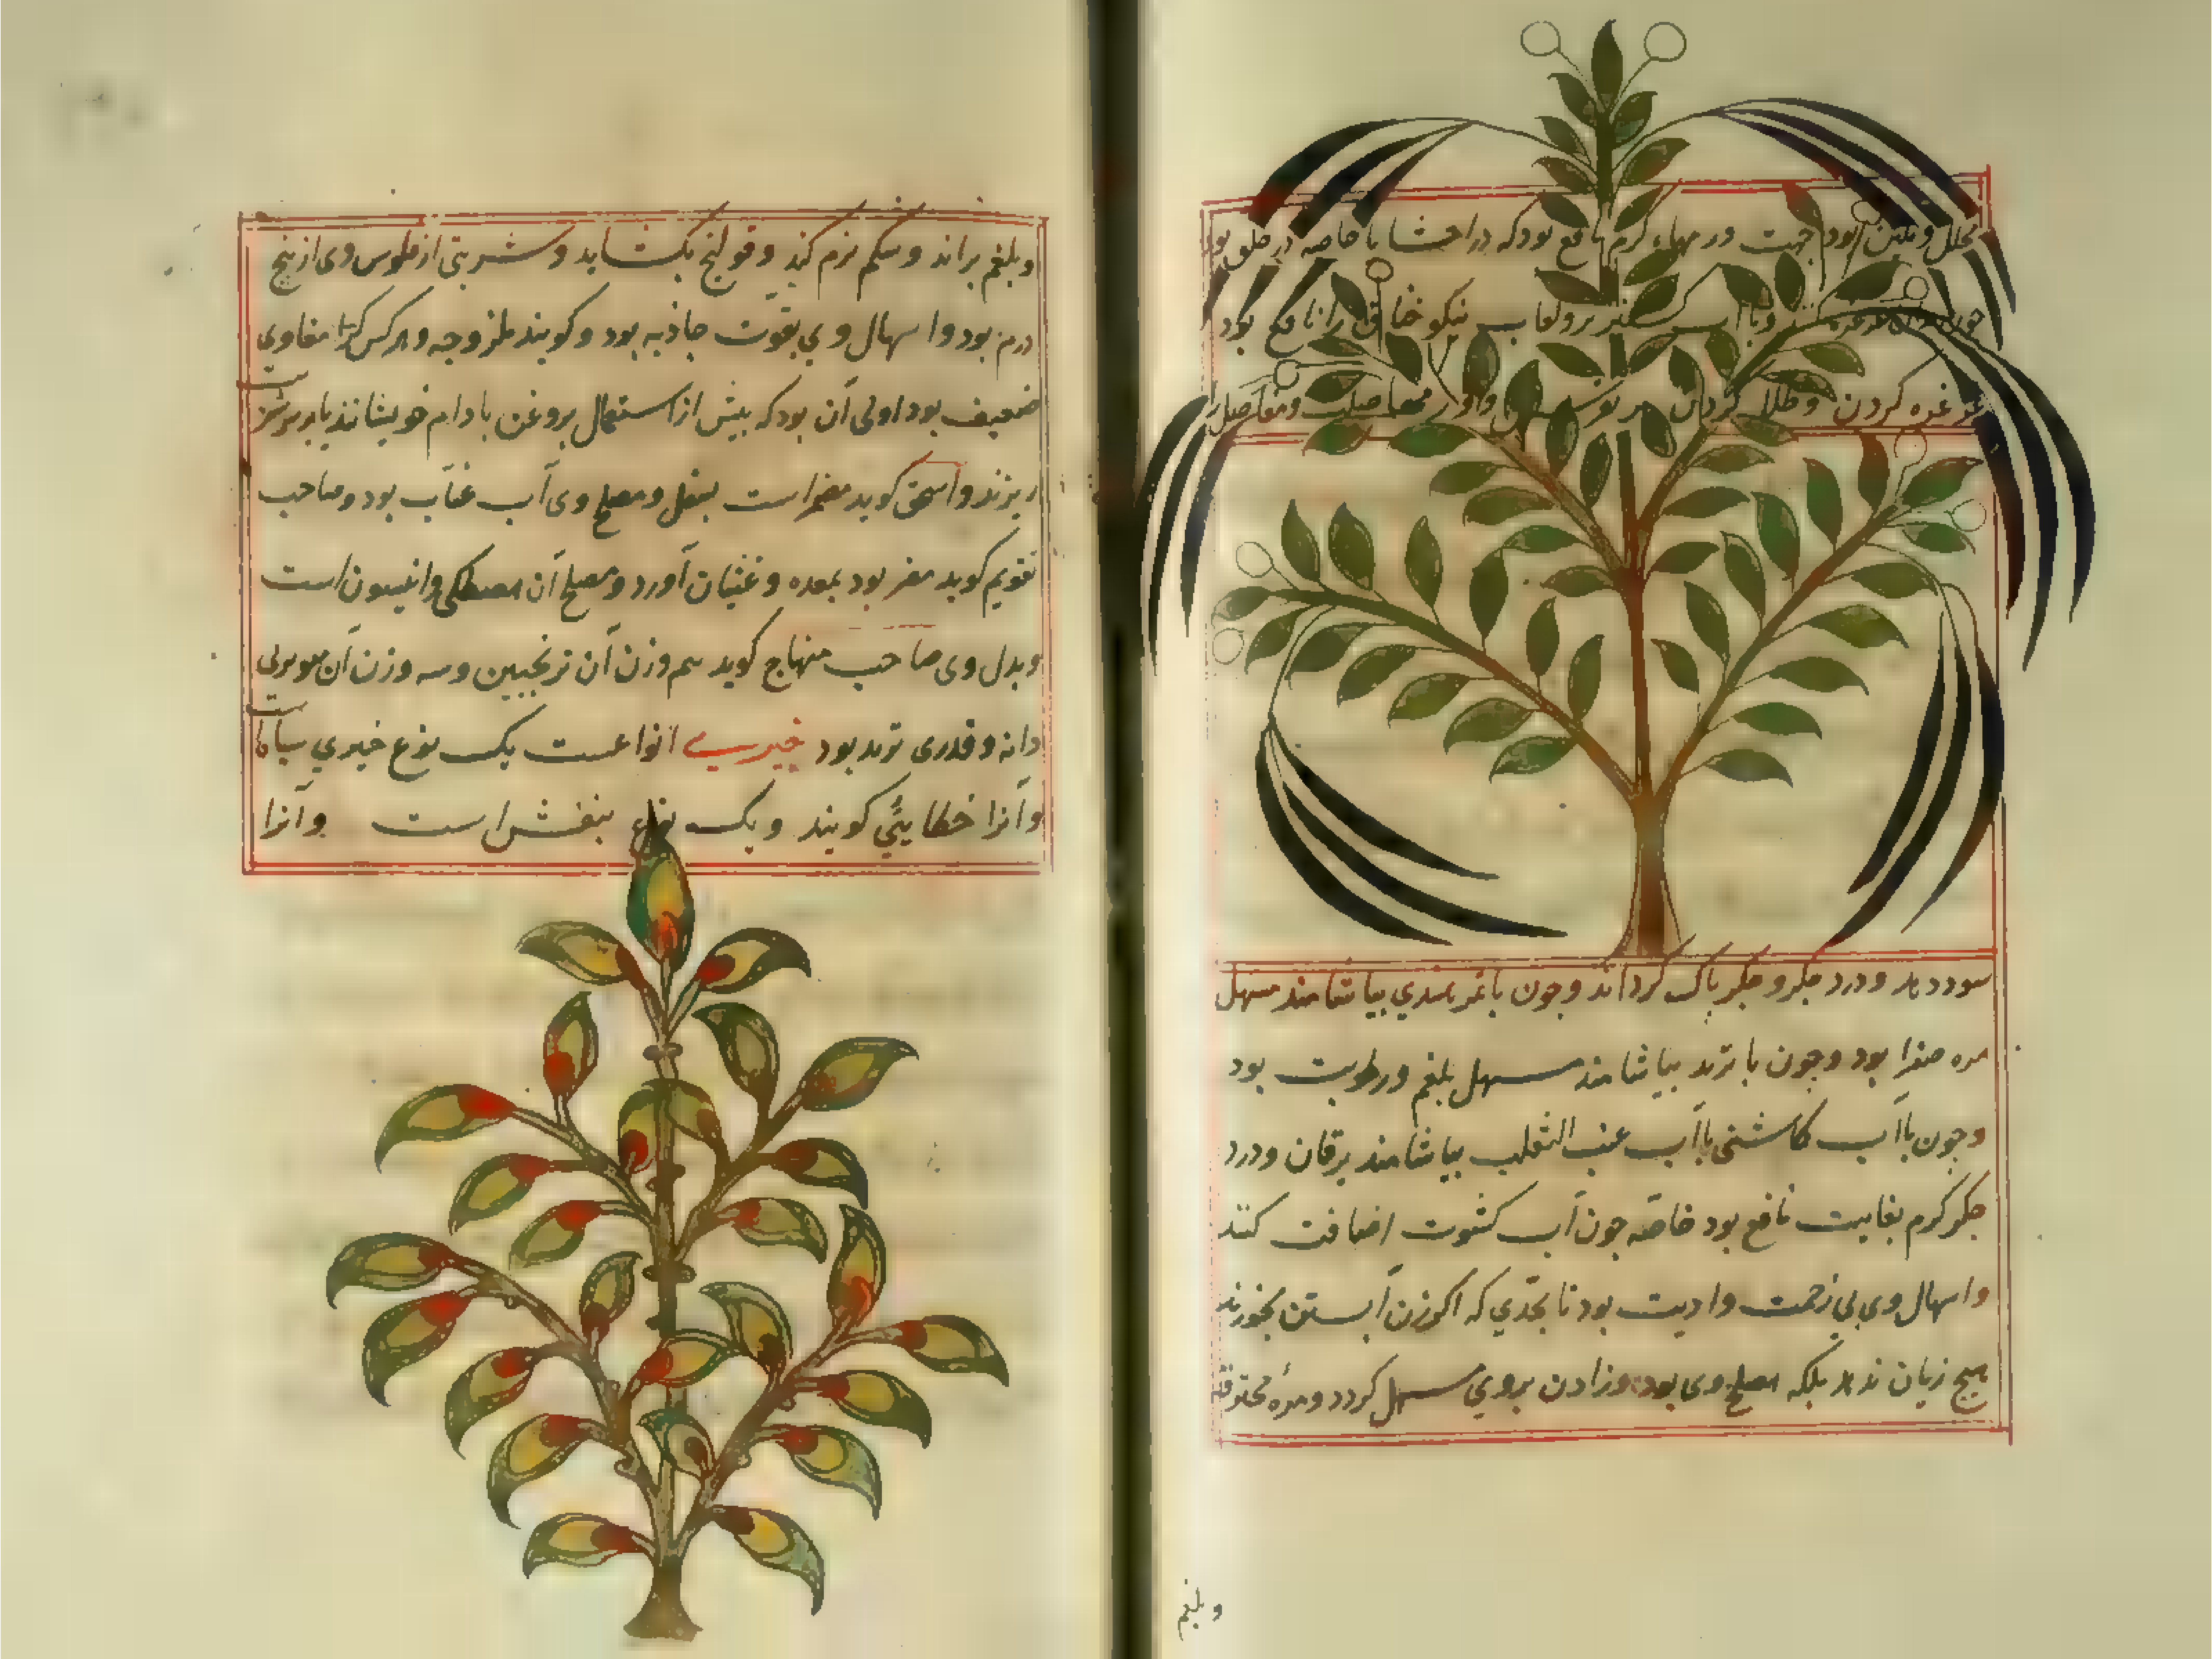 محلل و ملین بود جهت ورمهاء کرم نافع بود که در احشا با خاصه در حلق بود
چون بدان غرغره کنند و با آب کشنیز تر و لعاب نیکو خناق را نافع بود
غرغره کردن و طلا کردن بر نقرس و اورام صلب و مفاصل را
سود دهد و درد جکر و جکر باک کرداند و جون با تمر هندی بیاشامند مسهل
مره صفرا بود و جون با تربد بیاشامند مسهل بلغم و رطوبت بود
و جون با آب کاسنی با آب عنب الثعلب بیاشامند یرقان و درد
جکر کرم بغایت نافع بود خاصه جون آب کشوت اضافت کنند
و اسهال وی بی زحمت و اذیت بود تا بحدی که اکر زن آبستن بخورد
هیج زیان ندهد بلکه مصلح وی بود و زادن بروی سهل کردد و مره محترقه
و بلغم
و بلغم براند و شکم نرم کند و قولنج بکشاید و شربتی از فلوس وی از پنج
درم بود و اسهال وی بقوت جاذبه بود و کویند بلزوجه و هرکس کی معاوی
ضعیف بود اولی آن بود که بیش از استعمال بروغن بادام خویشانند یا بر سرش
ریزند و اسحق کوید مضر است بسفل و مصلح وی آب عناب بود و صاحب
تقویم کوید مضر بود بمعده و غثیان آورد و مصلح آن مصطکی و انیسون است
و بدل وی صاحب منهاج کوید سم وزن آن ترنجبین و سه وزن آن مویز بی
دانه و قدری تربد بود خیری انواعست یک نوع خیری سیاه است
و آنرا خطایئی کویند و یک نوع بنفش است و آنرا